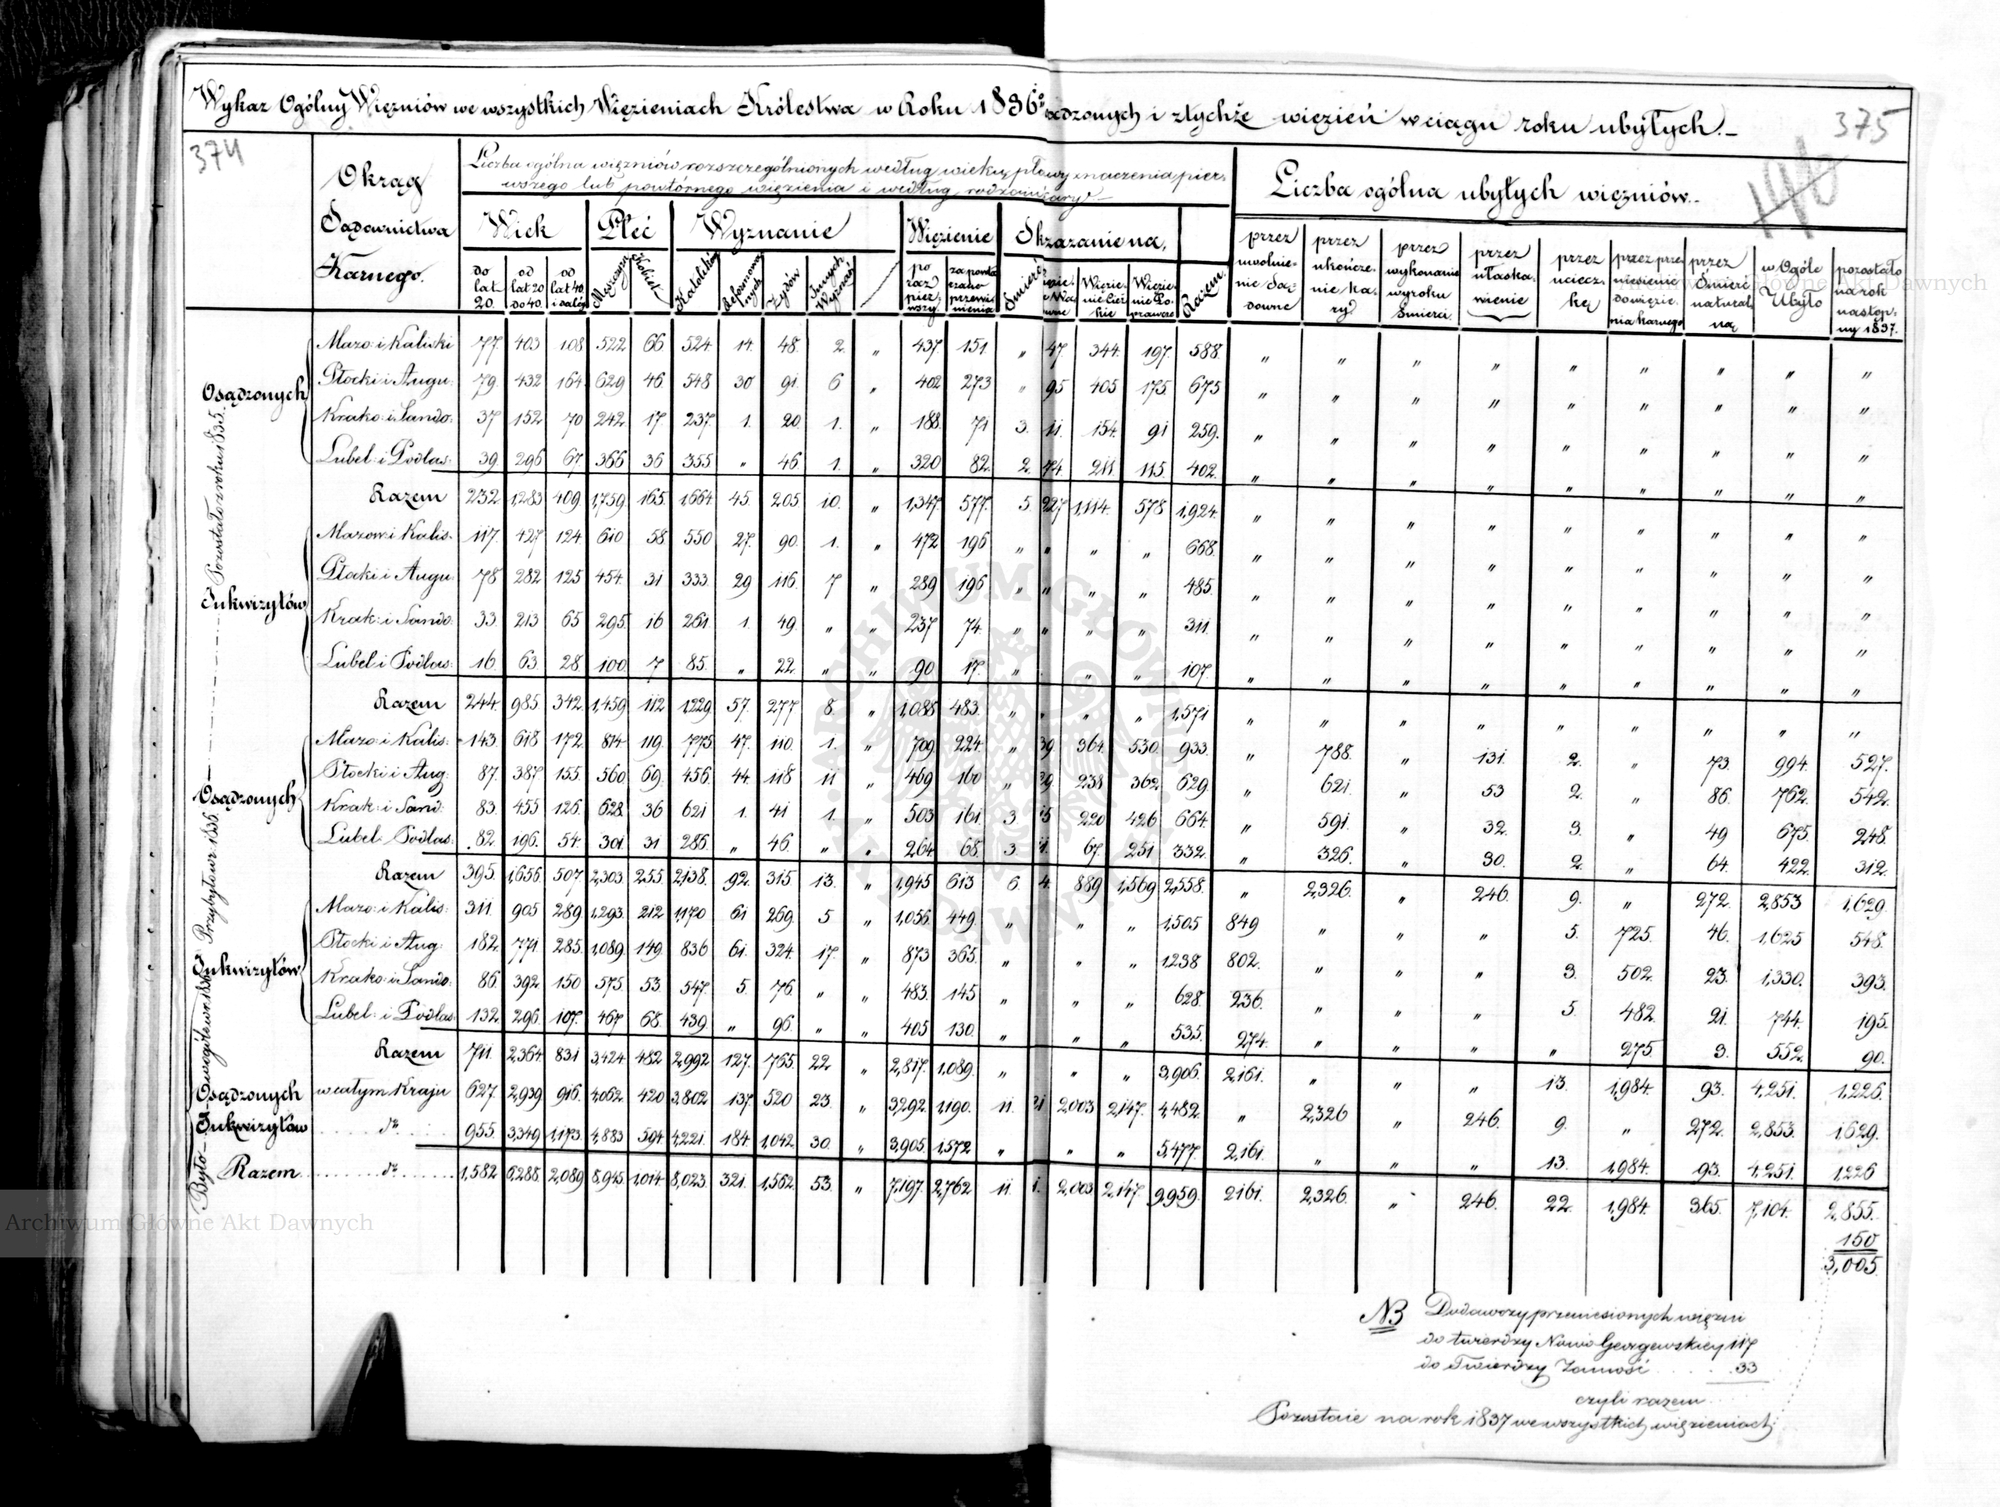 Wykaz Ogólny Więzniów we wszystkich Więzieniach Królestwa w Roku 1836 sądzonych i ztychże więzień w ciągu roku ubyłych.
374
375
Okrąg Sądownictwa Karnego.
Liczba ogólna więzniów rozszczególnionych według wieku, płci, wyznaczenia pier-
wszego lub powtórnego więzienia i według rodzaju kary
Liczba ogólna ubyłych więzniów.
Wiek Płeć Wyznanie Więzienie Skazanie na Razem
do lat 20. od lat 20 do 40. od lat 40 i dalej Męzczyzn Kobiet Katolików Reformowanych Żydów Innych Wyznań po raz pierwszy za powtórzeniem przewinienia Śmierć Więzienie Warowne Więzienie Ciężkie Więzienie Poprawcze
przez uwolnienie Sądowne przez ukończenie kary przez wykonanie wyroku Śmierci przez ułaskawienie przez ucieczkę przez przeniesienie do więzienia karnego przez Śmierć naturalną w Ogóle Ubyło pozostało na rok następny 1837.
Pozostało z roku 1835.
Osądzonych
Mazo: i Kaliski 77. 403 108 522 66. 524 14. 48. 2. „ 437. 151. „ 47 344. 197. 588. „ „ „ „ „ „ „ „ „
Płocki i Augu: 79. 432 164. 629 46 548 30 91. 6 „ 402 273 „ 95 405 175. 675 „ „ „ „ „ „ „ „ „
Krako: i Sando: 37 152 70 242 17. 237. 1. 20. 1. „ 188. 71 3. 11. 154. 91 259. „ „ „ „ „ „ „ „ „
Lubel: i Podlas: 39. 296 67. 366 36 355 „ 46. 1. „ 320 82. 2. 74. 211 115. 402. „ „ „ „ „ „ „ „ „
Razem 232. 1,283 409 1,759 165. 1,664 45. 205 10. „ 1,347. 577. 5. 227 1,114. 578 1,924. „ „ „ „ „ „ „ „ „
Inkwizytów
Mazow: i Kalis: 117. 427 124 610 58 550 27. 90. 1. „ 472 196 „ „ „ „ 668. „ „ „ „ „ „ „ „ „
Płocki i Augu: 78 282 125 454. 31 333. 29 116. 7 „ 289 196 „ „ „ „ 485. „ „ „ „ „ „ „ „ „
Krak: i Sando: 33. 213 65 295. 16 261. 1. 49. „ „ 237 74. „ „ „ „ 311. „ „ „ „ „ „ „ „ „
Lubel: i Podlas: 16. 63 28 100 7 85. „ 22. „ „ 90 17. „ „ „ 107. „ „ „ „ „ „ „ „ „
Razem 244. 985. 342. 1,459 112 1,229 57. 277 8. „ 1,088 483. „ „ „ 1,571 „ „ „ „ „ „ „ „ „
Przybyło w r. 1836.
Osądzonych
Mazo: i Kalis: 143. 618 172. 814 119. 775 47. 110. 1. „ 709. 224. „ 39. 364. 530. 933. „ 788. „ 131. 2. „ 73. 994. 527.
Płocki i Aug: 87. 387 155. 560 69. 456. 44. 118 11 „ 469 160 „ 29. 238 362. 629. „ 621. „ 53 2. „ 86. 762. 542.
Krak: i Sand: 83. 455 126. 628. 36 621 1. 41 1. „ 503 161 3 15 220 426 664. „ 591. „ 32. 3. „ 49 675. 248.
Lubel: Podlas: 82. 196. 54. 301 31 286. „ 46. „ „ 264. 68. 3. 67. 251 332. „ 326. „ 30. 2. „ 64. 422. 312.
Razem 395. 1,656 507 2,303 255. 2,138. 92. 315 13. „ 1,945 613 6. 4. 889 1,569 2,558. „ 2,326. „ 246. 9. „ 272. 2,853 1,629.
Inkwizytów
Mazo: i Kalis: 311. 905 289. 1,293. 212. 1,170 61 269. 5 „ 1,056. 449. „ „ „ 1,505 849 „ „ „ 5. 725. 46. 1,625 548.
Płocki i Aug: 182. 771 285. 1,089. 149. 836 61. 324. 17. „ 873 365. „ „ „ 1238 802. „ „ „ 3. 502. 23. 1,330. 393.
Krako: i Sando: 86. 392 150 575 53 547. 5. 76. „ „ 483. 145 „ „ „ 628. 236. „ „ „ 5. 482. 21. 744. 195.
Lubel: i Podlas: 132. 296 107. 467 68. 439. „ 96. „ „ 405 130. „ „ „ 535. 274. „ „ „ „ 275. 3. 552. 90.
Razem 711. 2,364 831 3,424 482 2,992 127. 765. 22. „ 2,817. 1,089. „ „ „ 3,906. 2,161. „ „ „ 13. 1,984 93. 4,251. 1,226.
Było w ogóle w r. 1836
Osądzonych w całym Kraju 627. 2,939 916. 4,062. 420 3,802 137. 520 23. „ 3,292. 1,190. 11. 21 2,003 2,147. 4,482. „ 2,326 „ 246. 9. „ 272. 2,853. 1,629.
Inkwizytów do 955. 3,349 1,173. 4,883 594 4,221. 184. 1,042. 30. „ 3,905. 1,572 „ „ „ 5,477. 2,161. „ „ „ 13. 1,984. 93. 4,251 1,226
Razem do 1,582 6,288. 2,089. 8,945. 1,014. 8,023. 321. 1,562. 53. „ 7,197. 2,762 11. 1. 2,003. 2,147. 9,959. 2161. 2,326. „ 246. 22. 1,984. 365. 7,104. 2,855.
150
3,005.
NB Dodawszy przeniesionych więzni
do twierdzy Nowo Georgewskiey 117
do Twierdzy Zamość 33
czyli razem
Pozostaie na rok 1837 we wszystkich więzieniach
Archiwum Główne Akt Dawnych
Archiwum Główne Akt Dawnych
ARCHIWUM GŁÓWNE AKT DAWNYCH